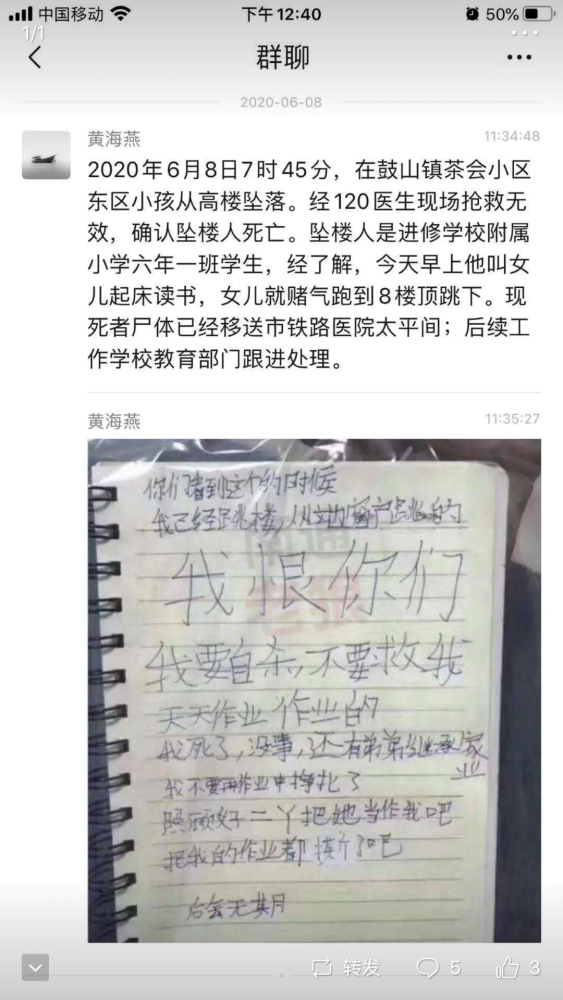 中国移动
下午12:40
50%
1/1
群聊
2020-06-08
黄海燕
11:34:48
2020年6月8日7时45分，在鼓山镇茶会小区
东区小孩从高楼坠落。经120医生现场抢救无
效，确认坠楼人死亡。坠楼人是进修学校附属
小学六年一班学生，经了解，今天早上他叫女
儿起床读书，女儿就赌气跑到8楼顶跳下。现
死者尸体已经移送市铁路医院太平间；后续工
作学校教育部门跟进处理。
黄海燕
11:35:27
你们看到这个的时候
我已经跳楼，从窗户跳的
我恨你们
我要自杀，不要救我
天天作业作业的
我死了，没事，还有弟弟继承家
业
我不要再作业中挣扎了
照顾好二丫把她当作我吧
把我的作业都了吧
后会无期
转发
5
3